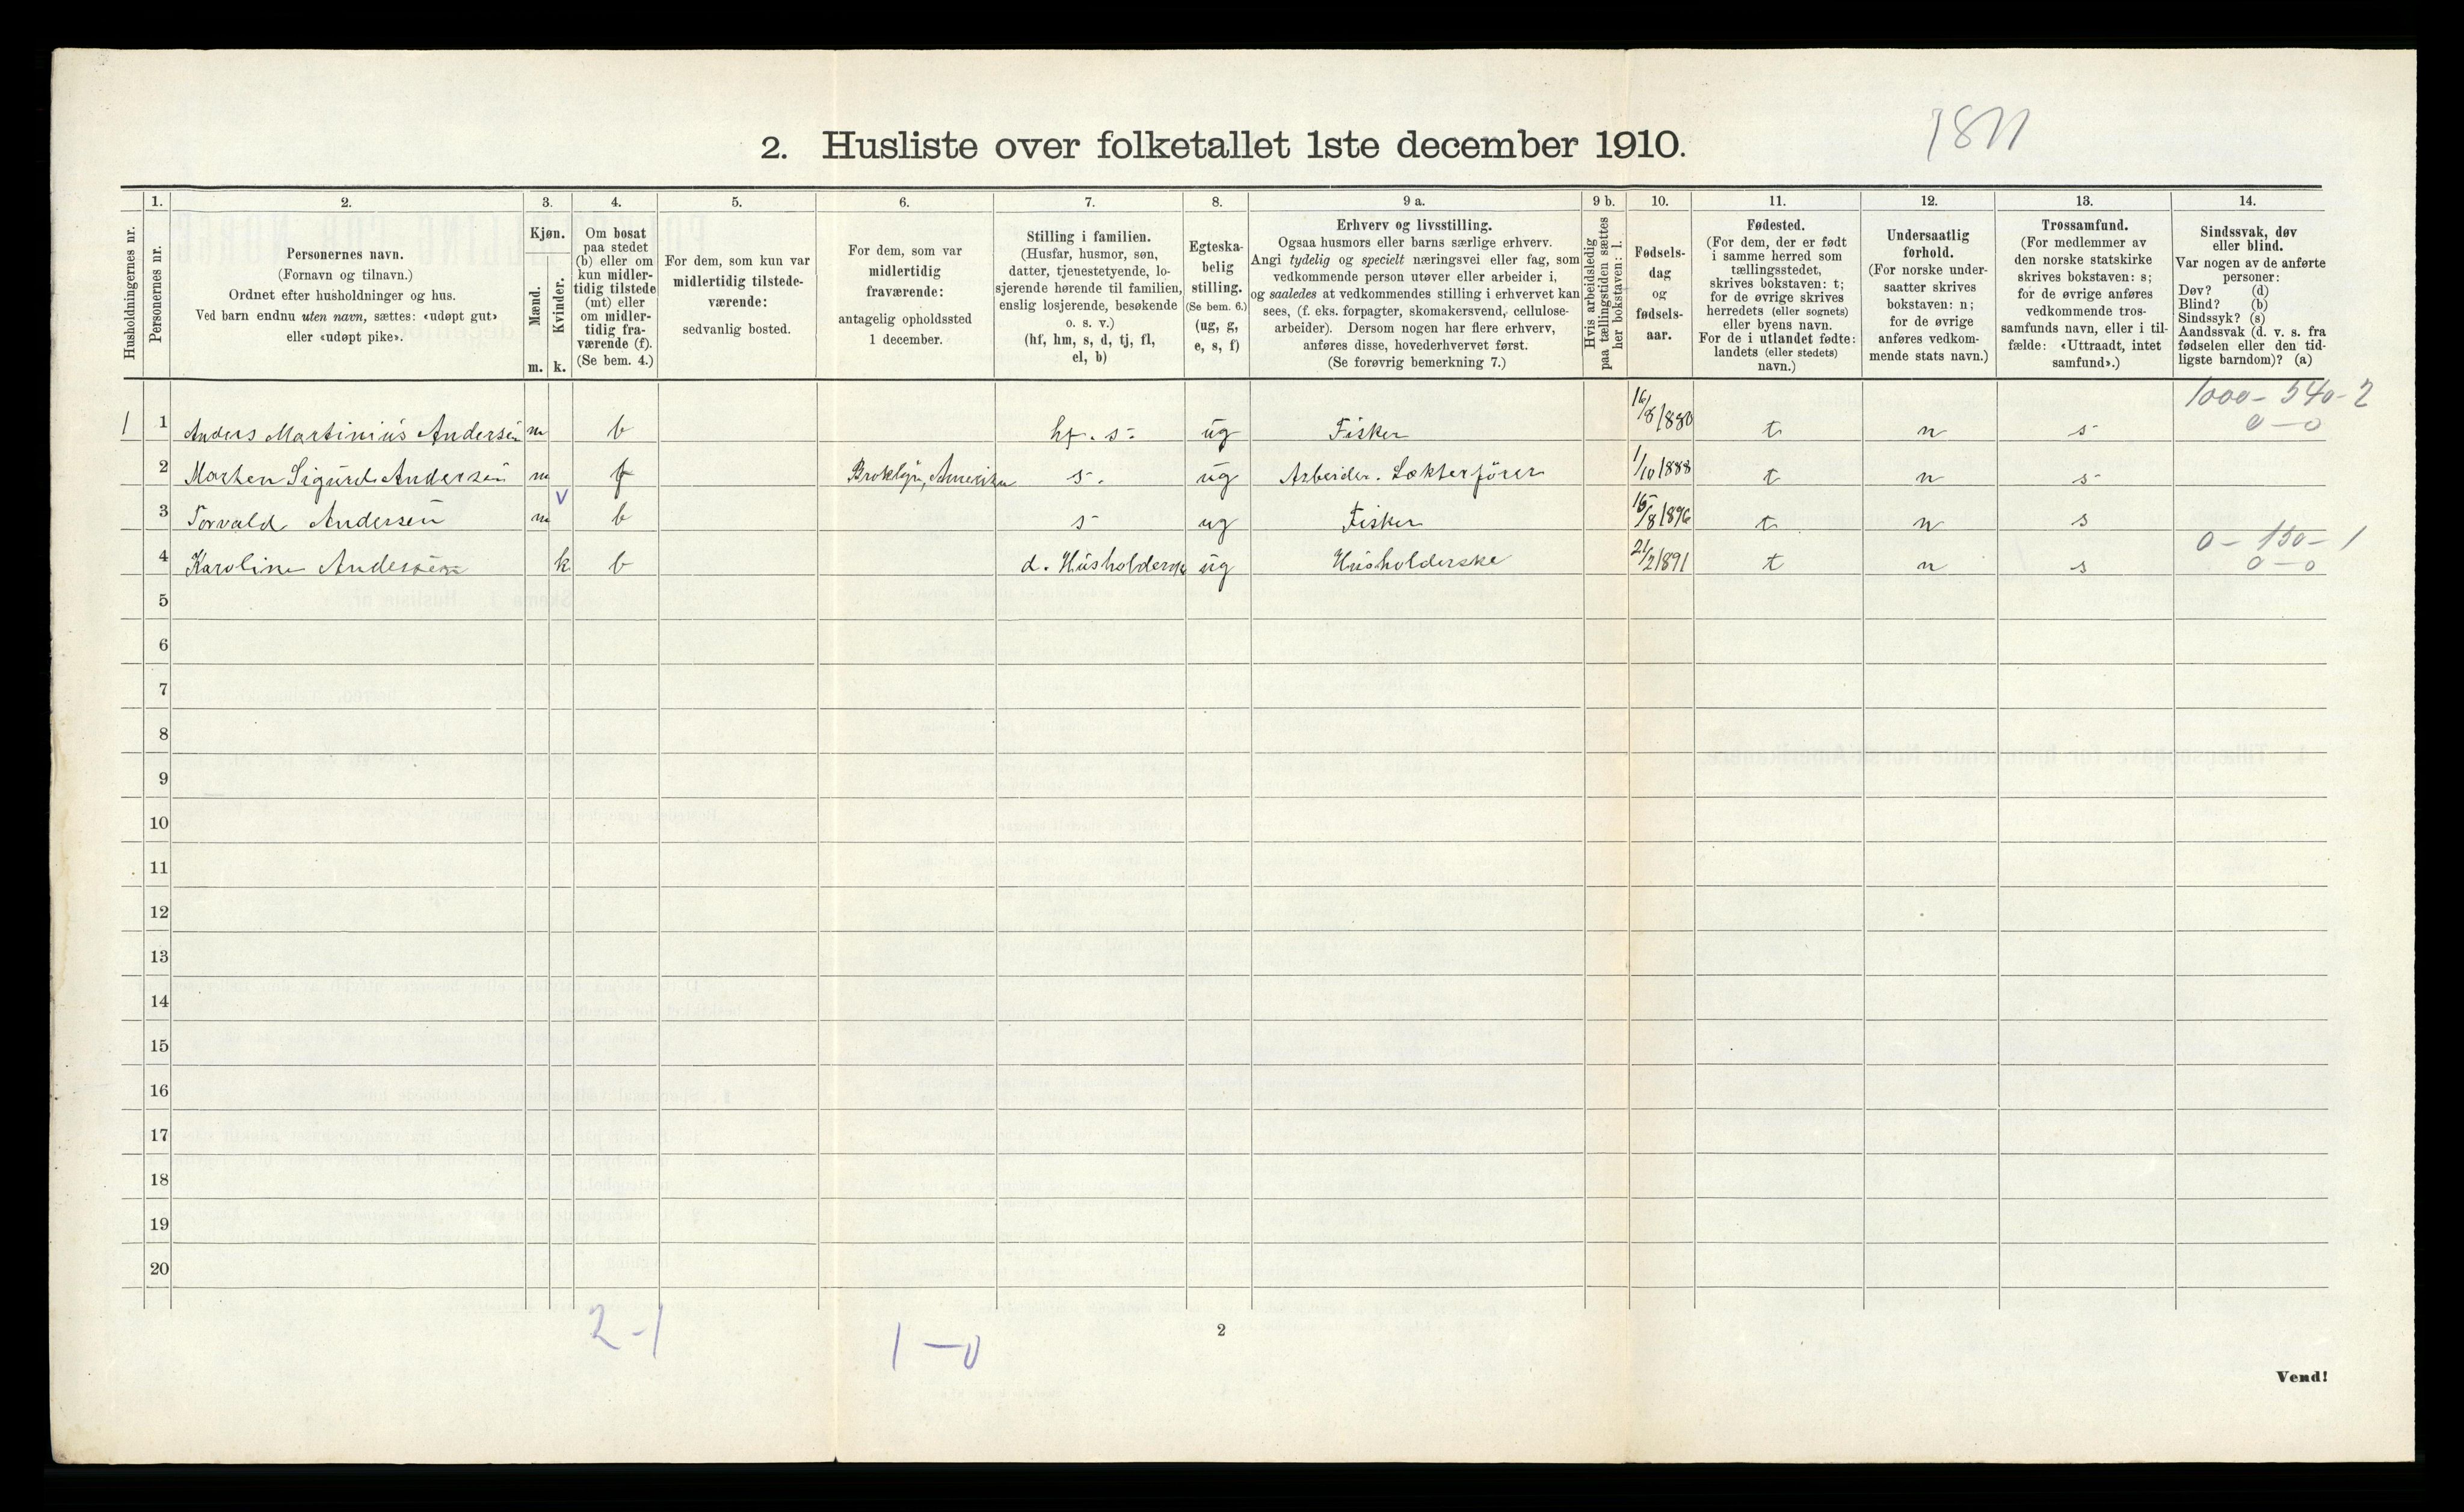 1811
2. Husliste over folketallet 1ste december 1910.
Husholdningernes nr.
1.
Personernes nr.
2.
Personernes navn.
(Fornavn og tilnavn.)
Ordnet efter husholdninger og hus.
Ved barn endnu uten navn, sættes: «udøpt gut»
eller «udøpt pike».
3.
Kjøn.
Mænd.
m.
Kvinder.
k.
4.
Om bosat
paa stedet
(b) eller om
kun midler-
tidig tilstede
(mt) eller
om midler-
tidig fra-
værende (f).
(Se bem. 4.)
5.
For dem, som kun var
midlertidig tilstede-
værende:
sedvanlig bosted.
6.
For dem, som var
midlertidig
fraværende:
antagelig opholdssted
1 december.
7.
Stilling i familien.
(Husfar, husmor, søn,
datter, tjenestetyende, lo-
sjerende hørende til familien,
enslig losjerende, besøkende
o. s. v.)
(hf, hm, s, d, tj, fl,
el, b)
8.
Egteska-
belig
stilling.
(Se bem. 6.)
(ug, g,
e, s, f)
9 a.
Erhverv og livsstilling.
Ogsaa husmors eller barns særlige erhverv.
Angi tydelig og specielt næringsvei eller fag, som
vedkommende person utøver eller arbeider i,
og saaledes at vedkommendes stilling i erhvervet kan
sees, (f. eks. forpagter, skomakersvend, cellulose-
arbeider). Dersom nogen har flere erhverv,
anføres disse, hovederhvervet først.
(Se forøvrig bemerkning 7.)
9 b.
Hvis arbeidsledig
paa tællingstiden sættes
her bokstaven: l.
10.
Fødsels-
dag
og
fødsels-
aar.
11.
Fødested.
(For dem, der er født
i samme herred som
tællingsstedet,
skrives bokstaven: t;
for de øvrige skrives
herredets (eller sognets)
eller byens navn.
For de i utlandet fødte:
landets (eller stedets)
navn.)
12.
Undersaatlig
forhold.
(For norske under-
saatter skrives
bokstaven: n;
for de øvrige
anføres vedkom-
mende stats navn.)
13.
Trossamfund.
(For medlemmer av
den norske statskirke
skrives bokstaven: s;
for de øvrige anføres
vedkommende tros-
samfunds navn, eller i til-
fælde: «Uttraadt, intet
samfund».)
14.
Sindssvak, døv
eller blind.
Var nogen av de anførte
personer:
Døv? (d)
Blind? (b)
Sindssyk? (s)
Aandssvak (d. v. s. fra
fødselen eller den tid-
ligste barndom)? (a)
1000 - 540 - 2
1 1 Anders Martinius Andersen m b hf. s. ug Fisker 16/8 1880 t n s 0 - 0
2 Morten Sigurd Andersen m f Broklyn, Amerika s. ug Arbeider. Lækterfører 1/10 1888 t n s
v
3 Torvald Andersen m b s ug Fisker 15/8 1896 t n s
0 - 150 - 1
4 Karoline Andersen k b d. Husholderske ug Husholderske 21/2 1891 t n s 0 - 0
5
6
7
8
9
10
11
12
13
14
15
16
17
18
19
20
2 - 1
1 - 0
2
Vend!